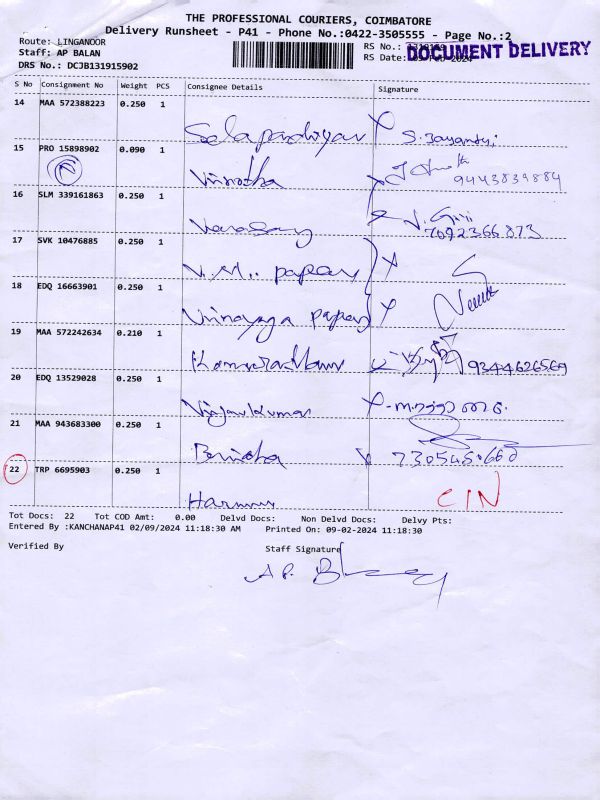 THE PROFESSIONAL COURIERS, COIMBATORE
Delivery Runsheet - P41 - Phone No.:0422-3505555 - Page No.:2
Route: LINGANOOR
Staff: AP BALAN
DRS No.: DCJB131915902
RS No.:
RS Date:
DOCUMENT DELIVERY
S No Consignment No Weight PCS Consignee Details Signature
14 MAA 572388223 0.250 1
S. Jayanthi
15 PRO 15898902 0.090 1
N
Vinotha 9443839884
16 SLM 339161863 0.250 1
7092366873
17 SVK 10476885 0.250 1
V.M.. papers
18 EDQ 16663901 0.250 1
Vinayaga papers
19 MAA 572242634 0.210 1
9344626569
20 EDQ 13529028 0.250 1
Vijaykumar
21 MAA 943683300 0.250 1
22 TRP 6695903 0.250 1
C/N
Tot Docs: 22 Tot COD Amt: 0.00 Delvd Docs: Non Delvd Docs: Delvy Pts:
Entered By :KANCHANAP41 02/09/2024 11:18:30 AM Printed On: 09-02-2024 11:18:30
Verified By Staff Signature